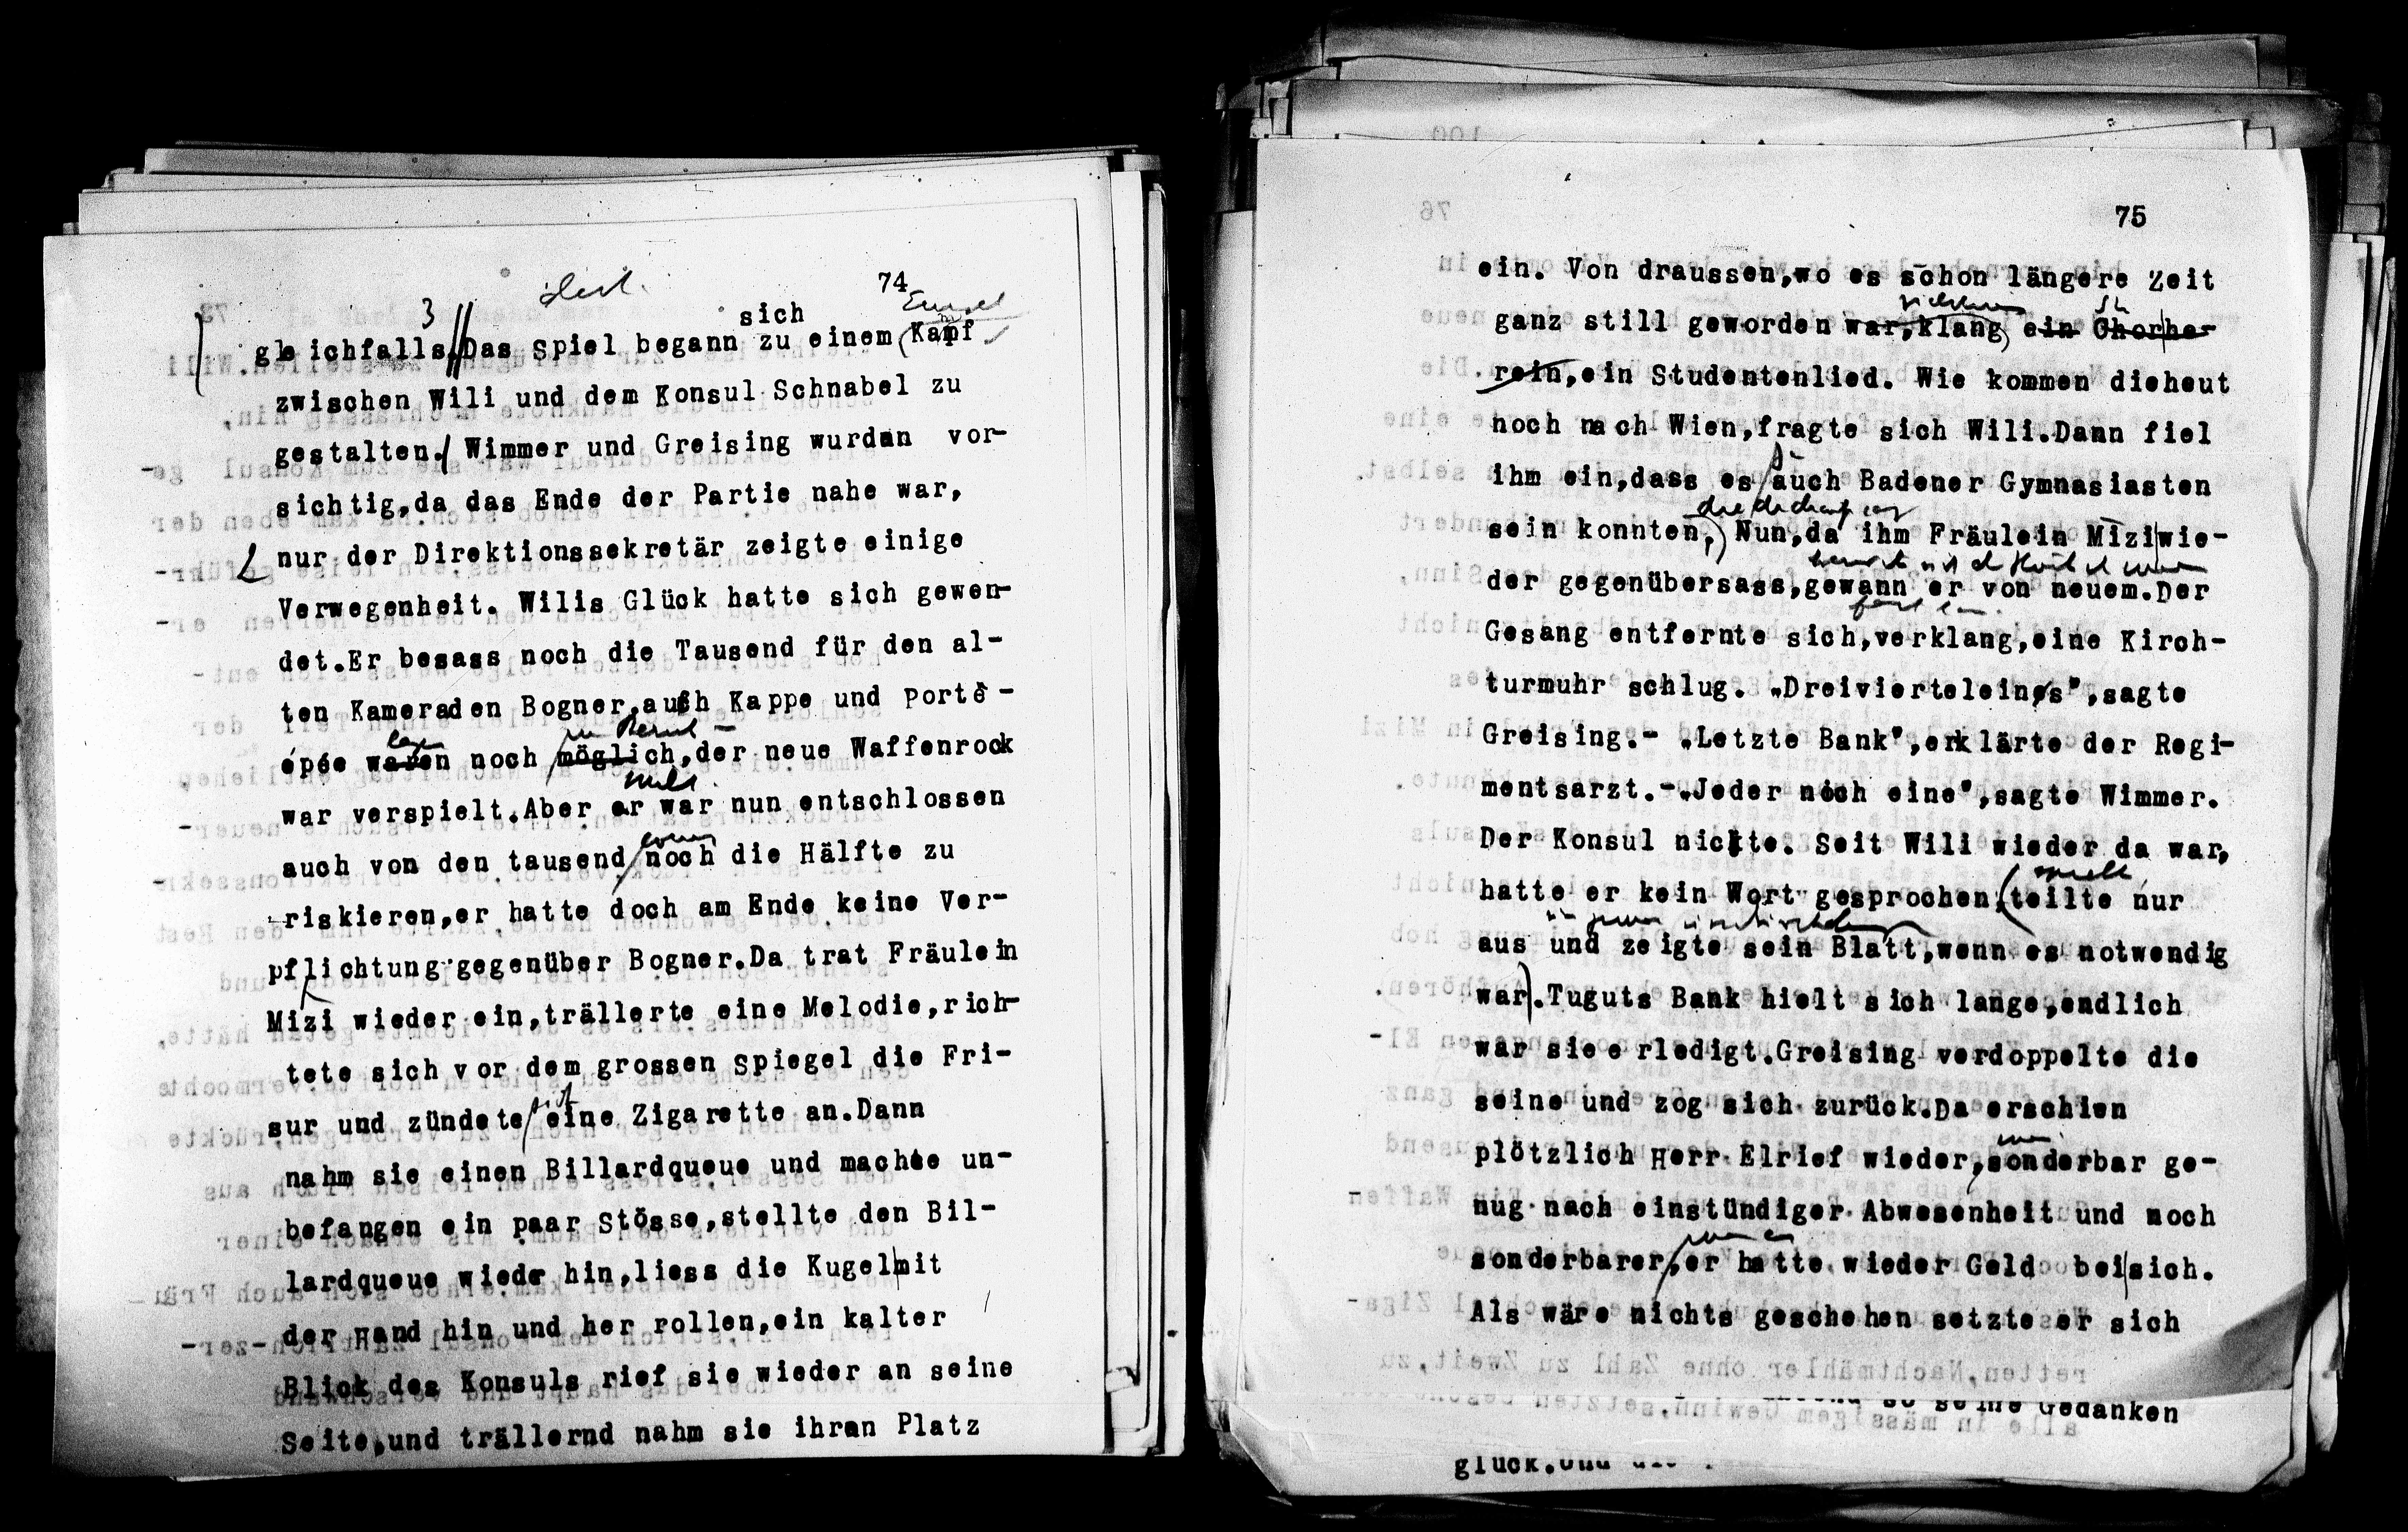 74
sich
gleichfalls.Das Spiel begann zu einem Kampf
zwischen Wili und dem Konsul Schnabel zu
gestalten. Wimmer und Greising wurden vor-
sichtig,da das Ende der Partie nahe war,
nur der Direktionssekretär zeigte einige
Verwegenheit. Wilis Glück hatte sich gewen-
det.Er besass noch die Tausend für den al-
ten Kameraden Bogner,auch Kappe und Porte-
épée waren noch möglich,der neue Waffenrock
war verspielt.Aber er war nun entschlossen
auch von den tausend noch die Hälfte zu
riskieren,er hatte doch am Ende keine Ver-
pflichtung gegenüber Bogner.Da trat Fräulein
Mizi wieder ein,trällerte eine Melodie,rich-
tete sich vor dem grossen Spiegel die Fri-
sur und zündete eine Zigarette an.Dann
nahm sie einen Billardqueue und machte un-
befangen ein paar Stösse,stellte den Bil-
lardqueue wieder hin,liess die Kugel mit
der Hand hin und her rollen,ein kalter
Blick des Konsuls rief sie wieder an seine
Seite,und trällernd nahm sie ihren Platz
75
ein. Von draussen,wo es schon längere Zeit
ganz still geworden war,klang ein Chorhe-
rein,ein Studentenlied. Wie kommen dieheut
noch nach Wien,fragte sich Wili.Dann fiel
ihm ein,dass es auch Badener Gymnasiasten
sein konnten, Nun,da ihm Fräulein Mizi wie-
der gegenübersass,gewann er von neuem.Der
Gesang entfernte sich,verklang,eine Kirch-
turmuhr schlug. „Dreivierteleins",sagte
Greising.- „Letzte Bank",erklärte der Regi-
mentsarzt.-„Jeder noch eine",sagte Wimmer.
Der Konsul nickte. Seit Wili wieder da war,
hatte er kein Wort gesprochen,teilte nur
aus und zeigte sein Blatt,wenn es notwendig
war.Tuguts Bank hielt sich lange,endlich
war sie erledigt.Greising verdoppelte die
seine und zog sich zurück.Da erschien
plötzlich Herr Elrief wieder,sonderbar ge-
nug nach einstündiger Abwesenheit und noch
sonderbarer,er hatte wieder Geld bei sich.
Als wäre nichts geschehen setzte er sich
seine Gedanken
glück.und